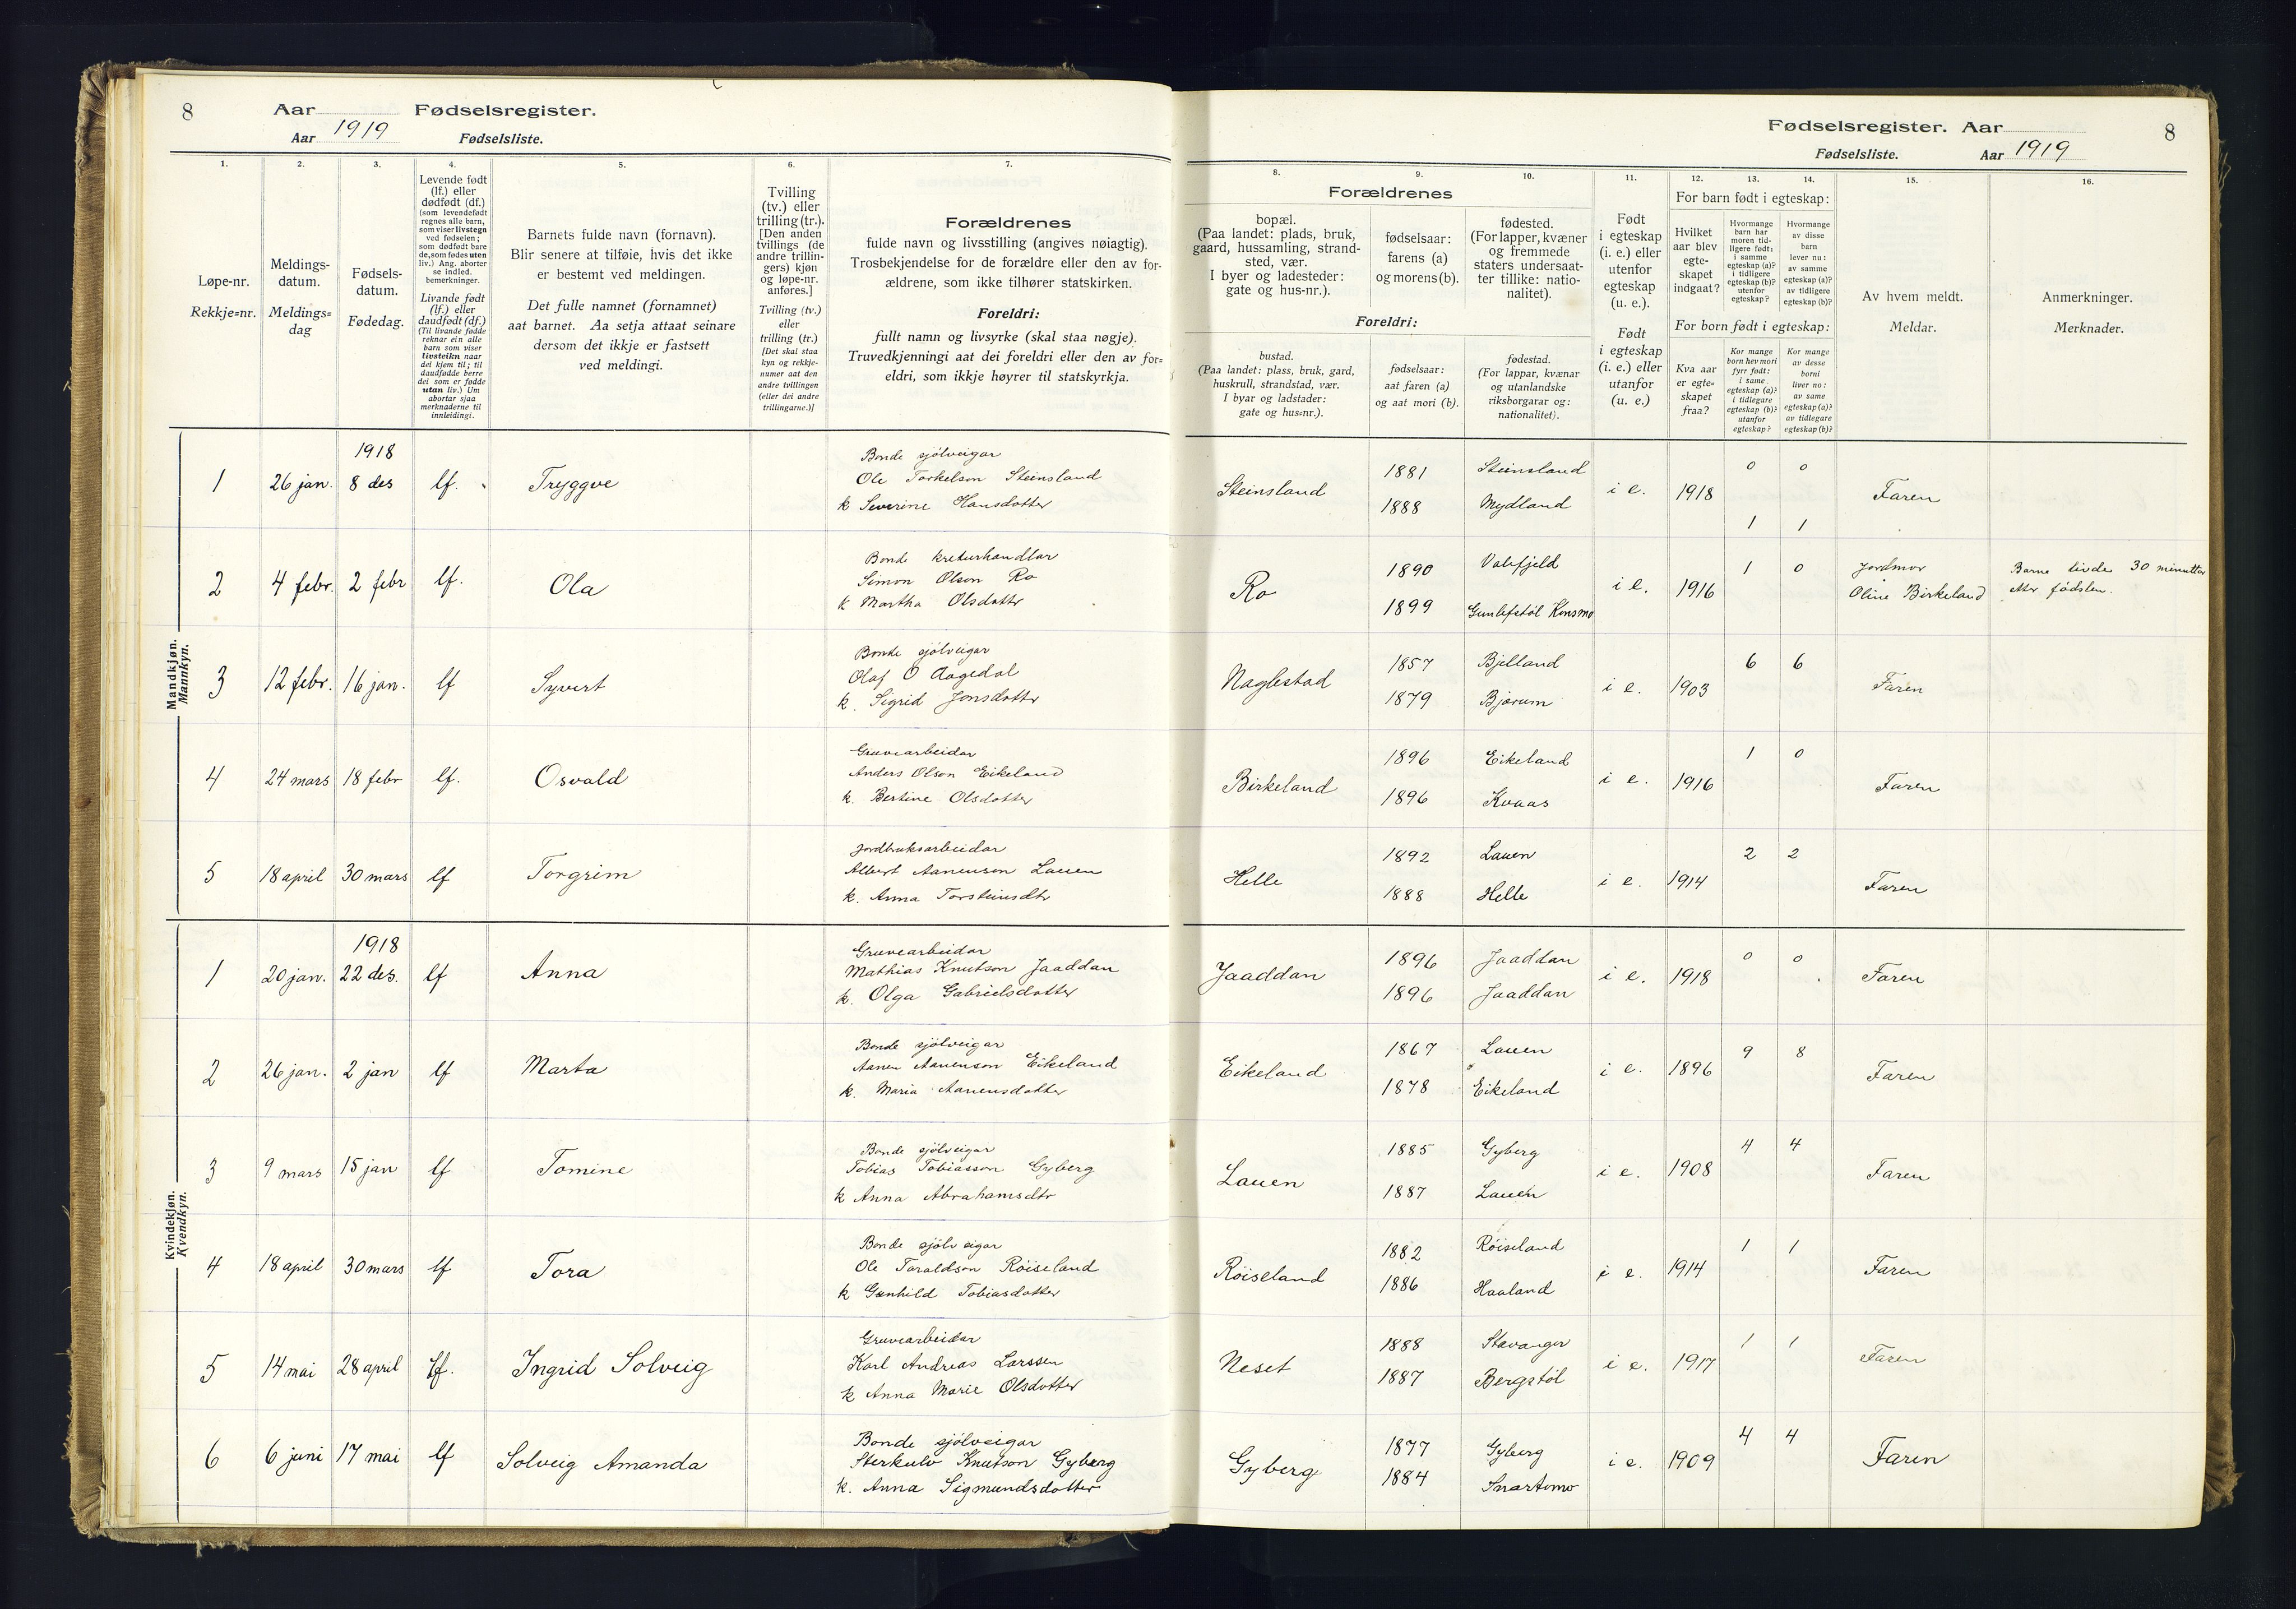 8 Aar Fødselsregister.
Aar 1919 Fødselsliste.
1. 2. 3. 4. 5. 6. 7.
Løpe-nr.
Rekkje=nr.
Meldings-
datum.
Meldings=
dag
Fødsels-
datum.
Fødedag.
Levende født
(lf.) eller
dødfødt (df.)
(som levendefødt
regnes alle barn,
som viser livstegn
ved fødselen;
som dødfødt bare
de, som fødes uten
liv.) Ang. aborter
se indled.
bemerkninger.
Livande født
(lf.) eller
daudfødt (df.)
(Til livande fødde
reknar ein alle
barn som viser
livsteikn naar
dei kjem til; til
daudfødde berre
dei som er fødde
utan liv.) Um
abortar sjaa
merknaderne til
innleidingi.
Barnets fulde navn (fornavn).
Blir senere at tilføie, hvis det ikke
er bestemt ved meldingen.
Det fulle namnet (fornamnet)
aat barnet. Aa setja attaat seinare
dersom det ikkje er fastsett
ved meldingi.
Tvilling
(tv.) eller
trilling (tr.).
[Den anden
tvillings (de
andre trillin-
gers) kjøn
og løpe-nr.
anføres.]
Tvilling (tv.)
eller
trilling (tr.)
[Det skal staa
kyn og rekkje-
numer aat den
andre tvillingen
(eller dei andre
trillingarne.)]
Forældrenes
fulde navn og livsstilling (angives nøiagtig).
Trosbekjendelse for de forældre eller den av for-
ældrene, som ikke tilhører statskirken.
Foreldri:
fullt namn og livsyrke (skal staa nøgje).
Truvedkjenningi aat dei foreldri eller den av for=
eldri, som ikkje høyrer til statskyrkja.
Mandkjøn.
Mannkyn.
1918
1 26 jan. 8 des lf. Tryggve
Bonde sjölveigar
Ole Torkelson Steinsland
k Severine Hansdotter
2 4 febr. 2 febr lf. Ola
Bonde kreturhandlar
Simon Olson Ro
k Martha Olsdottr
3 12 febr. 16 jan. lf Syvert
Bonde sjölveigar
Olaf O Aagedal
k. Sigrid Jonsdottr
4 24 mars 18 febr lf. Osvald
Gruvearbeidar
Anders Olson Eikeland
k. Bertine Olsdotter
5 18 april 30 mars lf Torgrim
Jordbruksarbeidar
Albert Aanenson Lauen
k. Anna Torsteinsdtr
Kvindekjøn.
Kvendkyn.
1918
1 20 jan. 22 des. lf Anna
Gruvearbeidar
Mathias Knutson Jaaddan
k. Olga Gabrielsdotter
2 26 jan. 2 jan lf Marta
Bonde sjölveigar
Aanen Aanenson Eikeland
k. Maria Aanensdotter
3 9 mars 15 jan lf Tomine
Bonde sjölveigar
Tobias Tobiasson Gyberg
k Anna Abrahamsdtr
4 18 april 30 mars lf Tora
Bonde sjölveigar
Ole Taraldson Röiseland
k Gunhild Tobiasdotter
5 14 mai 28 april lf. Ingrid Solveig
Gruvearbeidar
Karl Andreas Larssen
k Anna Marie Olsdotter
6 6 juni 17 mai lf Solveig Amanda
Bonde sjölveigar
Sterkulv Knutson Gyberg
k. Anna Sigmundsdotter
Fødselsregister. Aar 8
Fødselsliste. Aar 1919
8. 9. 10. 11. 12. 13. 14. 15. 16.
Forældrenes
bopæl.
(Paa landet: plads, bruk,
gaard, hussamling, strand-
sted, vær.
I byer og ladesteder:
gate og hus-nr.).
fødselsaar:
farens (a)
og morens (b).
fødested.
(For lapper, kvæner
og fremmede
staters undersaat-
ter tillike: natio-
nalitet).
Foreldri:
bustad.
(Paa landet: plass, bruk, gard,
huskrull, strandstad, vær.
I byar og ladstader:
gate og hus=nr.).
fødselsaar:
aat faren (a)
og aat mori (b).
fødestad.
(For lappar, kvænar
og utanlandske
riksborgarar og:
nationalitet).
Født
i egteskap
(i. e.) eller
utenfor
egteskap
(u. e.).
Født
i egteskap
(i. e.) eller
utanfor
(u. e.)
For barn født i egteskap:
Hvilket
aar blev
egte-
skapet
indgaat?
Hvormange
barn har
moren tid-
ligere født:
i samme
egteskap (a)?
i tidligere
egteskap (b)?
utenfor
egteskap?
Hvormange
av disse
barn
lever nu:
av samme
egteskap (a)?
av tidligere
egteskap (b)?
For born født i egteskap:
Kva aar
er egte=
skapet
fraa?
Kor mange
born hev mori
fyrr født:
i same
egteskap (a)?
i tidlegare
egteskap (b)?
utanfor
egteskap?
Kor mange
av desse
borni
liver no:
av same
egteskap (a)?
av tidlegare
egteskap (b)?
Av hvem meldt.
Meldar.
Anmerkninger.
Merknader.
1881 Steinsland 0 0
Steinsland i e. 1918 Faren
1888 Mydland
1 1
1890 1 0 Jordmor Barne livde 30 minuttar
Ro i e. 1916 Oline Birkeland etter födslen.
1899 Kinsmo
1857 Bjelland 6 6
Naglestad i e. 1903 Faren
1879 Bjærum
1896 Eikeland 1 0
Birkeland i e. 1916 Faren
1896 Kvaas
1892 Lauen 2 2
Helle i e. 1914 Faren
1888 Helle
1896 Jaaddan 0 0
Jaaddan i e. 1918 Faren
1896 Jaaddan
1867 Lauen 9 8
Eikeland i e. 1896 Faren
1878 Eikeland
1885 Gyberg 4 4
Lauen i e. 1908 Faren
1887 Lauen
1882 Röiseland 1 1
Röiseland i e. 1914 Faren
1886 Haaland
1888 Stavanger 1 1
Neset i e. 1917 Faren
1887 Bergstöl
1877 Gyberg 4 4
Gyberg i e. 1909 Faren
1884 Snartemo